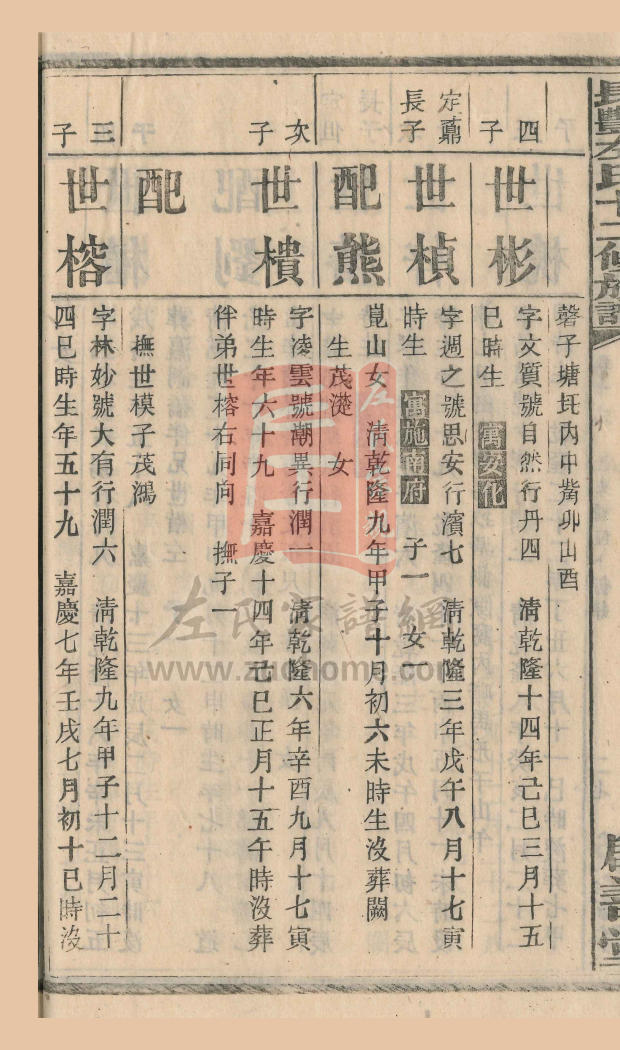 長豐左氏十二修族譜
磬子塘坵內中嘴卯山酉
四子
世彬
字文質號自然行丹四 清乾隆十四年己巳三月十五
巳時生 寓安化
定鼐長子
世楨
字週之號思安行濱七 清乾隆三年戊午八月十七寅
時生 寓施南府 子一 女一
配熊
崑山女 清乾隆九年甲子十月初六未時生沒葬闕
生茂濋 女
次子
世樻
字凌雲號潮異行潤一 清乾隆六年辛酉九月十七寅
時生年六十九 嘉慶十四年己巳正月十五午時沒葬
伴弟世榕右同向 撫子一
配
撫世模子茂鴻
三子
世榕
字林妙號大有行潤六 清乾隆九年甲子十二月二十
四巳時生年五十九 嘉慶七年壬戌七月初十巳時沒
左氏家譜網
www.zuohome.com